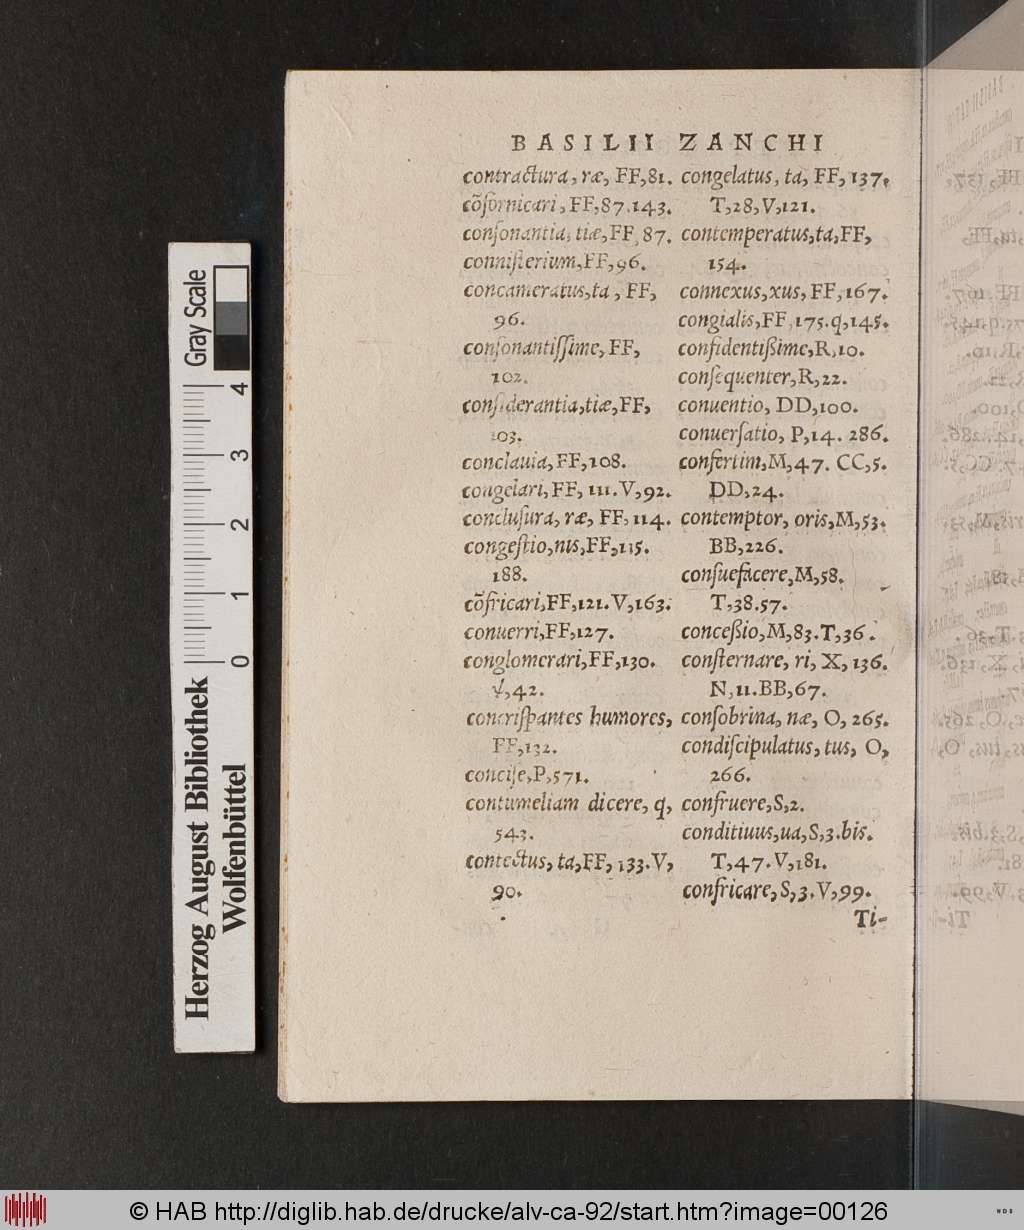 BASILII ZANCHI
contractura, ræ, FF,81.
cõfornicari, FF,87.143.
conſonantia, tiæ, FF, 87.
conniſterium, FF,96.
concameratus, ta, FF,
96.
conſonantiſſime, FF,
102.
conſiderantia, tiæ, FF,
103.
conclauia, FF,108.
congelari, FF, 111.V,92.
concluſura, ræ, FF, 114.
congeſtio, nis, FF,115.
188.
cõfricari, FF,121.V,163.
conuerri, FF,127.
conglomerari, FF,130.
V,42.
concriſpantes humores,
FF,132.
conciſe, P,571.
contumeliam dicere, q,
543.
contectus, ta, FF, 133.V,
90.
congelatus, ta, FF, 137.
T,28,V,121.
contemperatus, ta, FF,
154.
connexus, xus, FF,167.
congialis, FF,175.q,145.
confidentißime, R,10.
conſequenter, R,22.
conuentio, DD,100.
conuerſatio, P,14. 286.
confertim, M,47. CC,5.
DD,24.
contemptor, oris, M,53.
BB,226.
conſuefacere, M,58.
T,38.57.
conceßio, M,83.T,36.
conſternare, ri, X, 136.
N,11.BB,67.
conſobrina, næ, O, 265.
condiſcipulatus, tus, O,
266.
confruere, S,2.
conditiuus, ua, S,3.bis.
T,47.V,181.
confricare, S,3.V,99.
Ti-
Gray Scale
4
3
2
1
0
Herzog August Bibliothek
Wolfenbüttel
© HAB http://diglib.hab.de/drucke/alv-ca-92/start.htm?image=00126